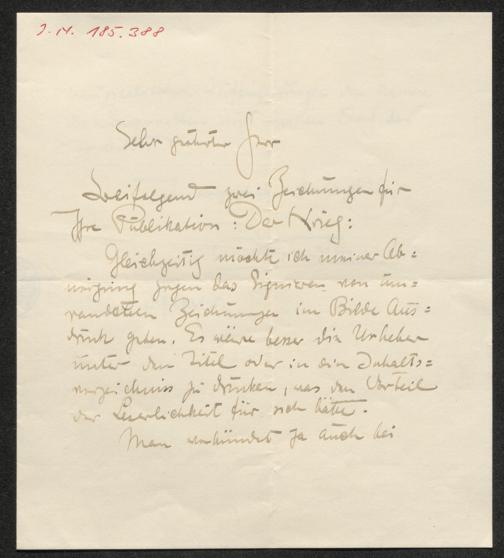 J.N. 185.388
Sehr geehrter Herr
Beifolgend zwei Zeichnungen für
Ihre Publikation: Der Krieg:
Gleichzeitig möchte ich meiner Ab=
neigung gegen das Signieren von um=
randeten Zeichnungen im Bilde Aus=
druck geben. Es wäre besser die Urheber
unter den Titel oder in ein Inhalts=
verzeichniss zu drucken, was den Vorteil
der Leserlichkeit für sich hätte.
Man verkündet ja auch bei